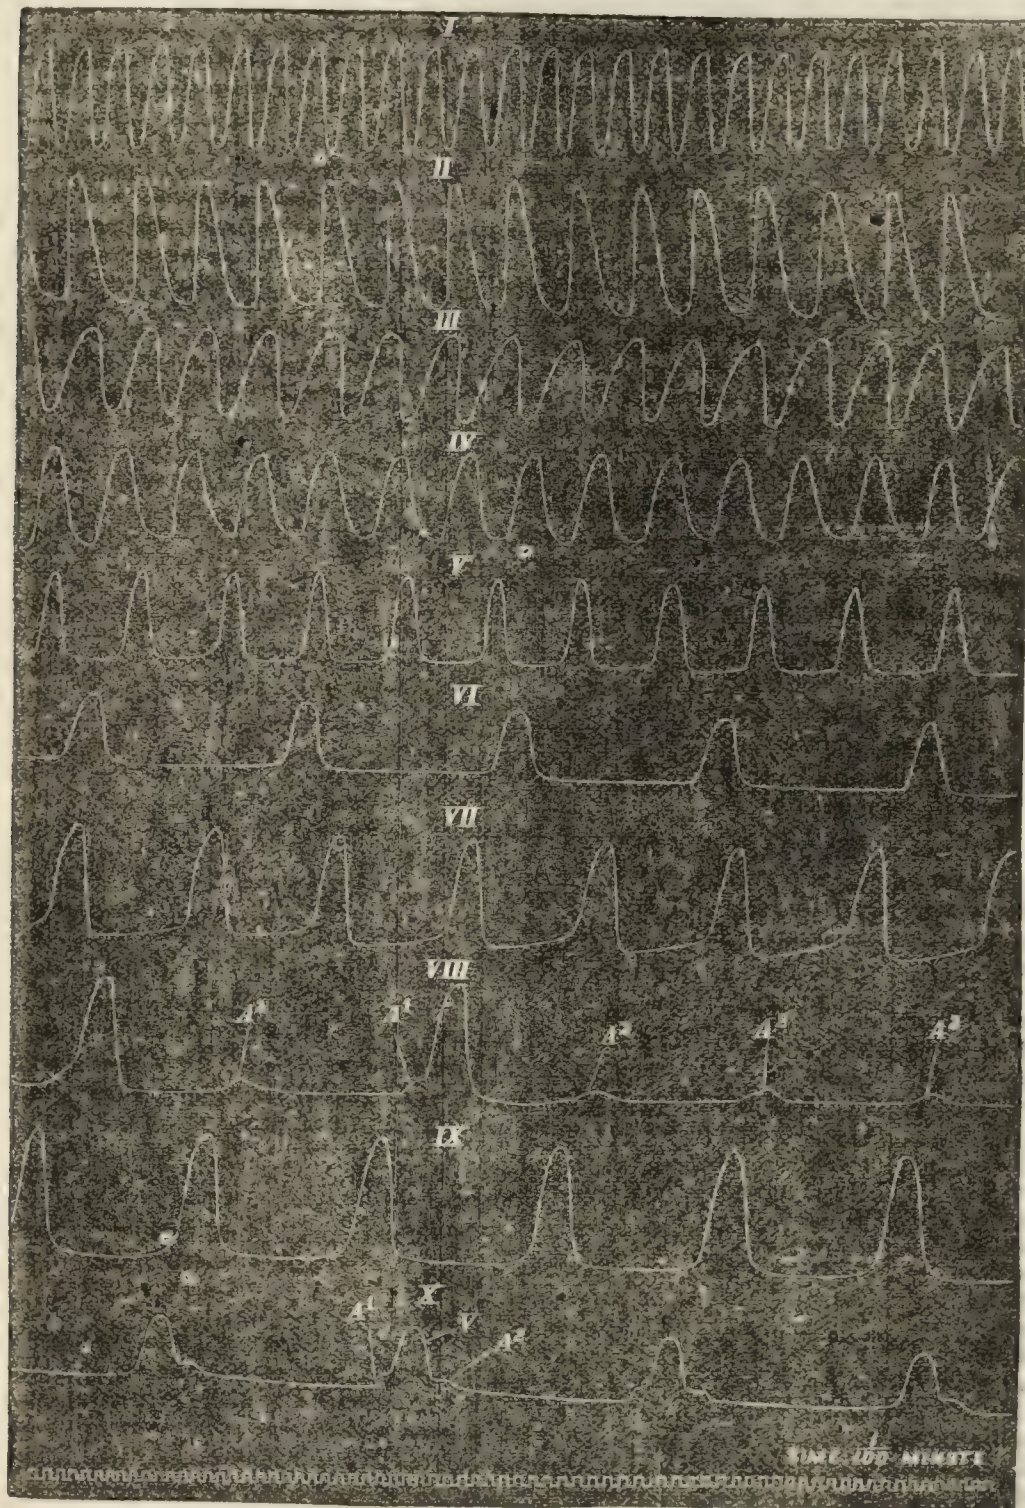 I
II
III
IV
V
VI
VII
VIII
A¹ A²
IX
X
A¹ V A²
TIME 1/100 MINUTE